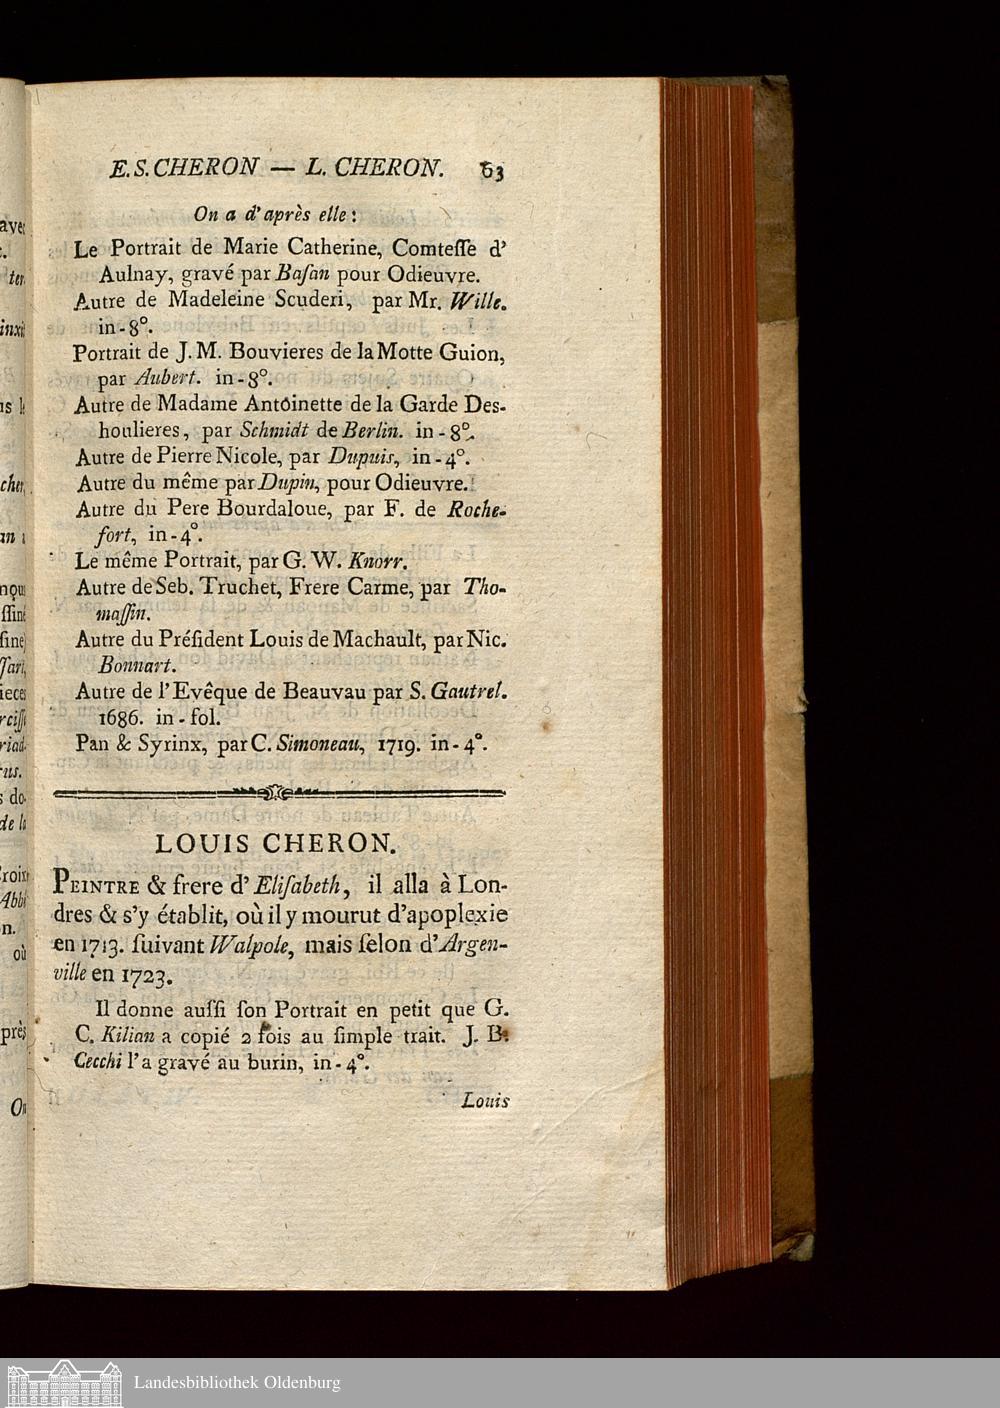 E. S. CHERON — L. CHERON. 63
On a d'après elle:
Le Portrait de Marie Catherine, Comtesse d'
Aulnay, gravé par Baſan pour Odieuvre.
Autre de Madeleine Scuderi, par Mr. Wille.
in-8°.
Portrait de J. M. Bouvieres de la Motte Guion,
par Aubert. in-8°.
Autre de Madame Antoinette de la Garde Des-
houlieres, par Schmidt de Berlin. in-8°.
Autre de Pierre Nicole, par Dupuis, in-4°.
Autre du même par Dupin, pour Odieuvre.
Autre du Pere Bourdaloue, par F. de Roche-
fort, in-4°.
Le même Portrait, par G. W. Knorr.
Autre de Seb. Truchet, Frere Carme, par Tho-
maſſin.
Autre du Préſident Louis de Machault, par Nic.
Bonnart.
Autre de l'Evêque de Beauvau par S. Gautrel.
1686. in-fol.
Pan & Syrinx, par C. Simoneau, 1719. in-4°.
LOUIS CHERON.
PEINTRE & frere d'Eliſabeth, il alla à Lon-
dres & s'y établit, où il y mourut d'apoplexie
en 1713. ſuivant Walpole, mais ſelon d'Argen-
ville en 1723.
Il donne auſſi ſon Portrait en petit que G.
C. Kilian a copié 2 fois au ſimple trait. J. B.
Cecchi l'a gravé au burin, in-4°.
Louis
Landesbibliothek Oldenburg